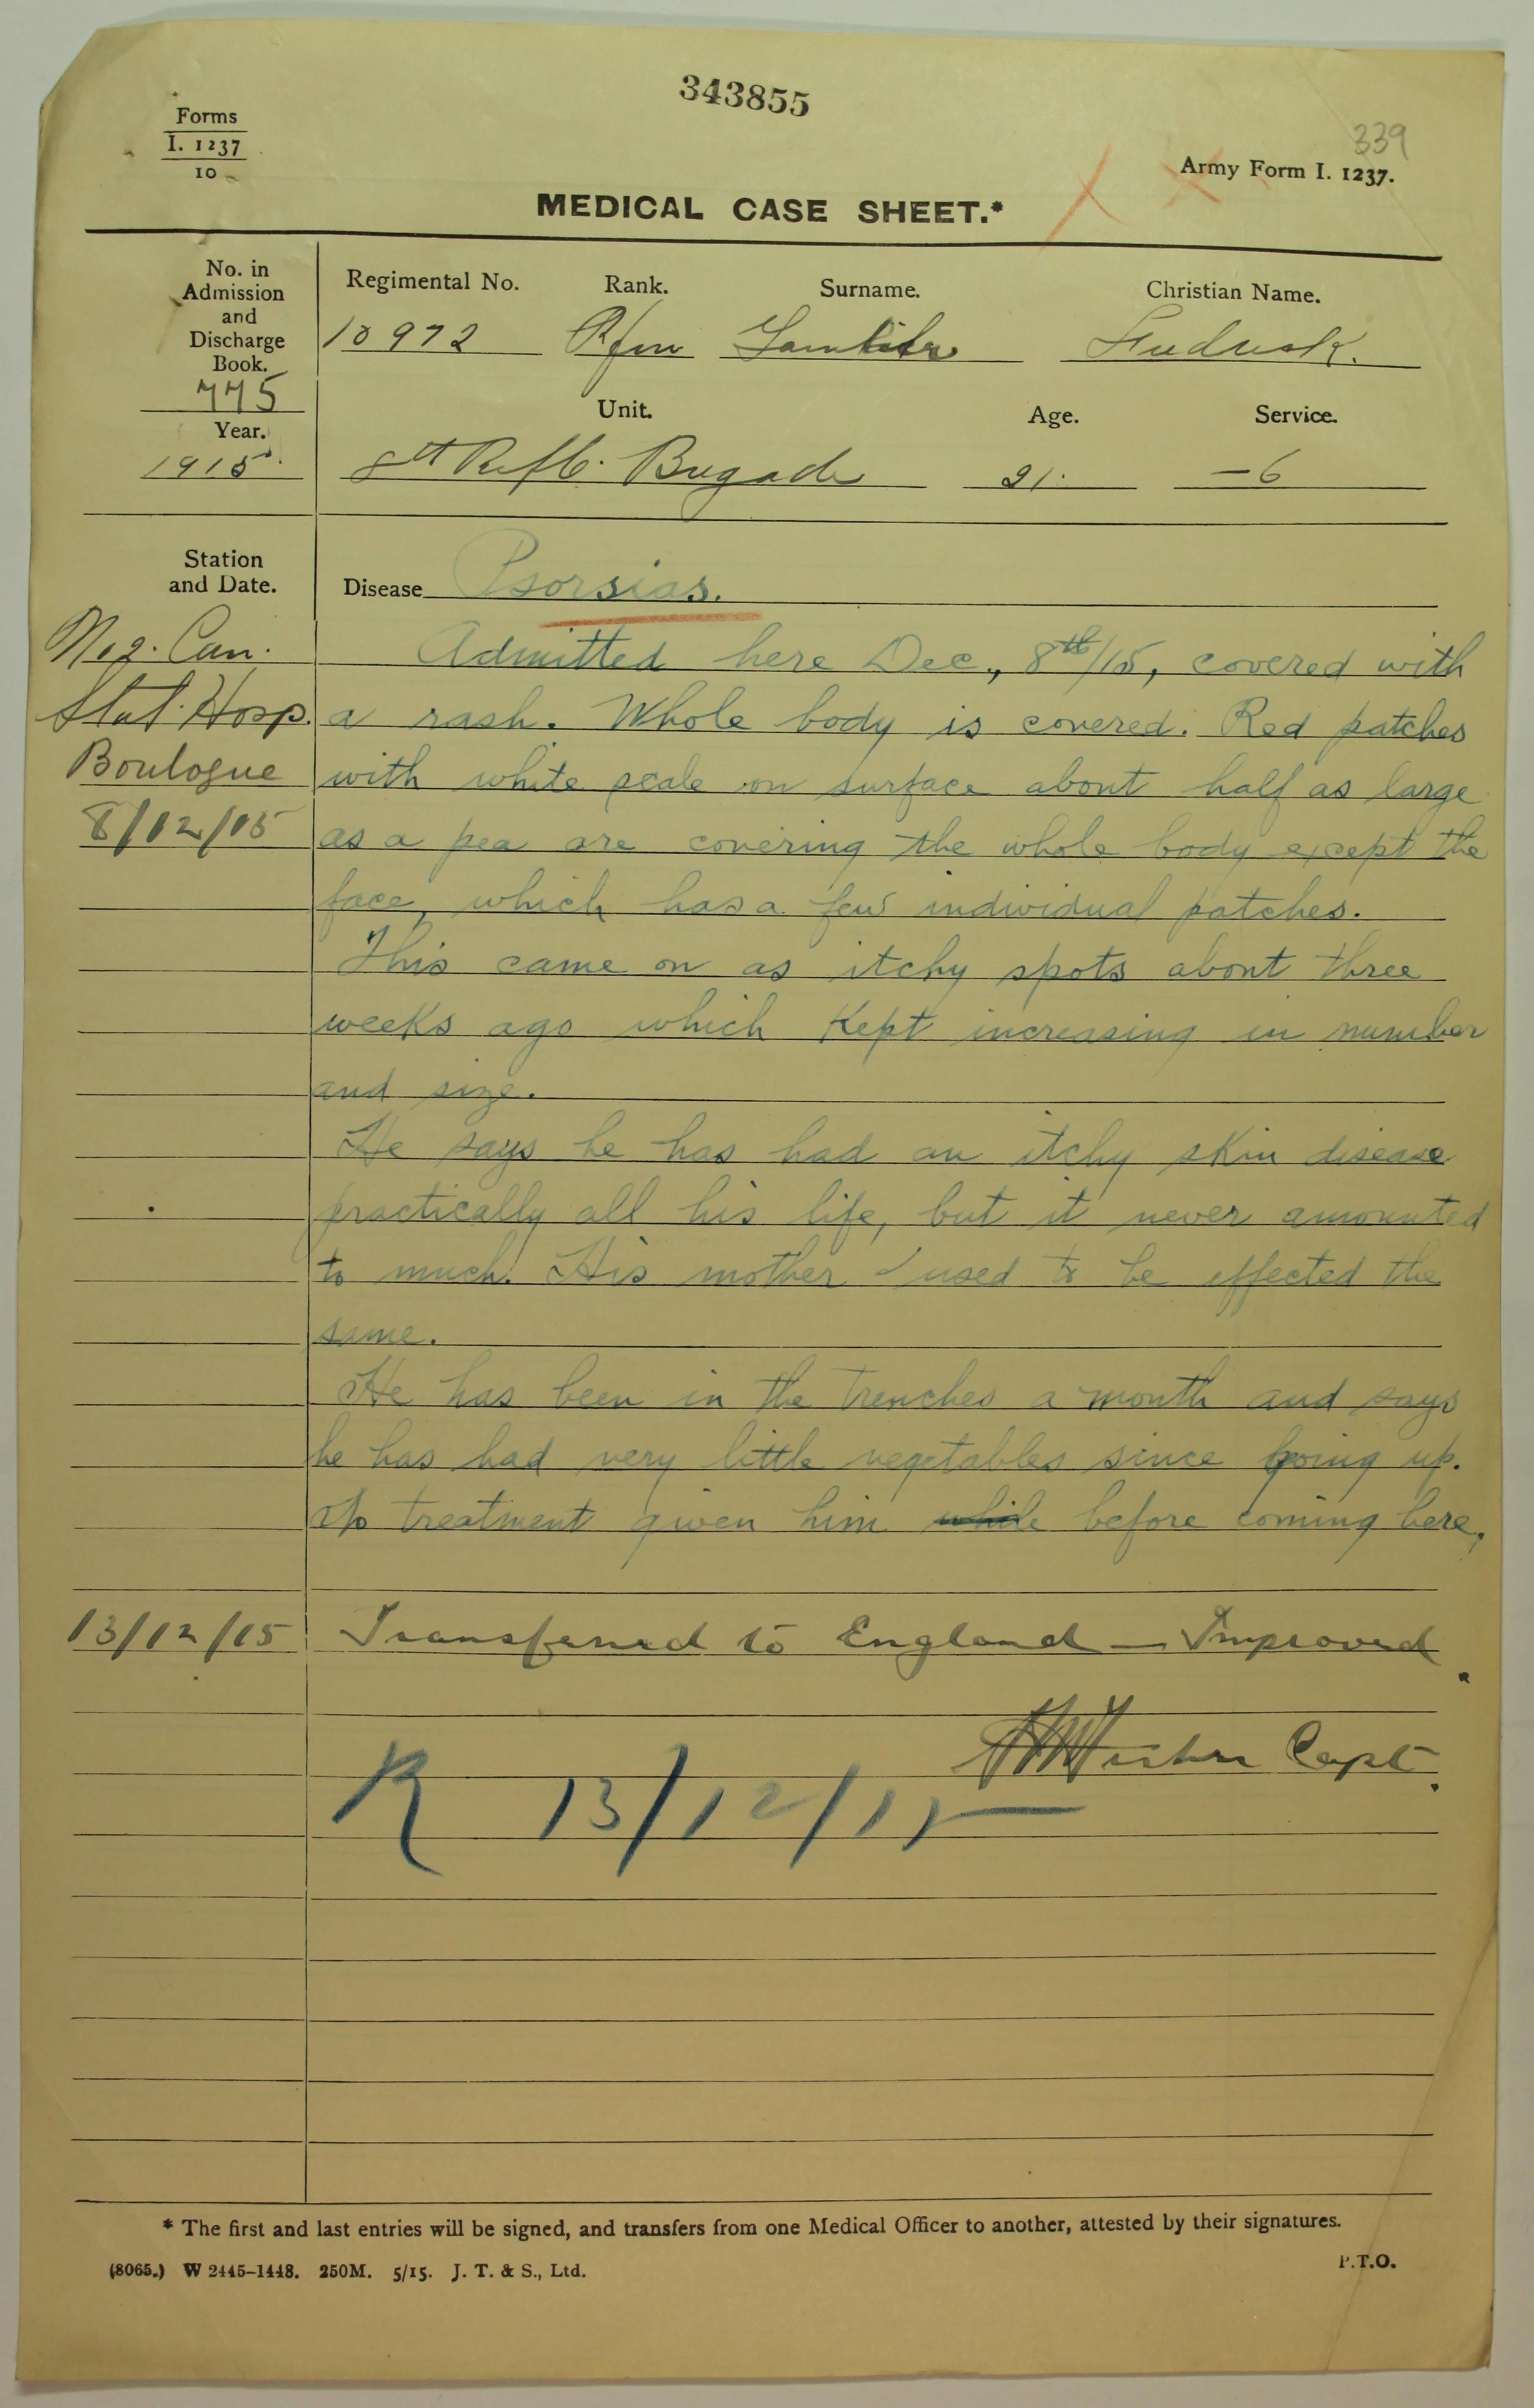 343855
Forms
I. 1237
10
339
Army Form I. 1237.
MEDICAL CASE SHEET.*
No. in Admission and Discharge Book.
775
Year.
1915
Regimental No. Rank. Surname. Christian Name.
10972 Rfm
Unit. Age. Service.
8th Rifle Brigade 21. 6
Station and Date.
Disease Psorsias.
No 2. Can.
Stat. Hosp.
Boulogne
8/12/15
Admitted here Dec., 8th/15, covered with
a rash. Whole body is covered. Red patches
with white scale on surface about half as large
as a pea are covering the whole body except the
face, which has a few individual patches.
This came on as itchy spots about three
weeks ago which kept increasing in number
and size.
He says he has had an itchy skin disease
practically all his life, but it never amounted
to much. His mother used to be effected the
same.
He has been in the trenches a month and says
he has had very little vegetables since going up.
No treatment given him while before coming here.
13/12/15 Transferred to England — Improved.
Capt.
R 13/12/15
* The first and last entries will be signed, and transfers from one Medical Officer to another, attested by their signatures.
(8065.) W 2445–1448. 250M. 5/15. J. T. & S., Ltd.
P.T.O.